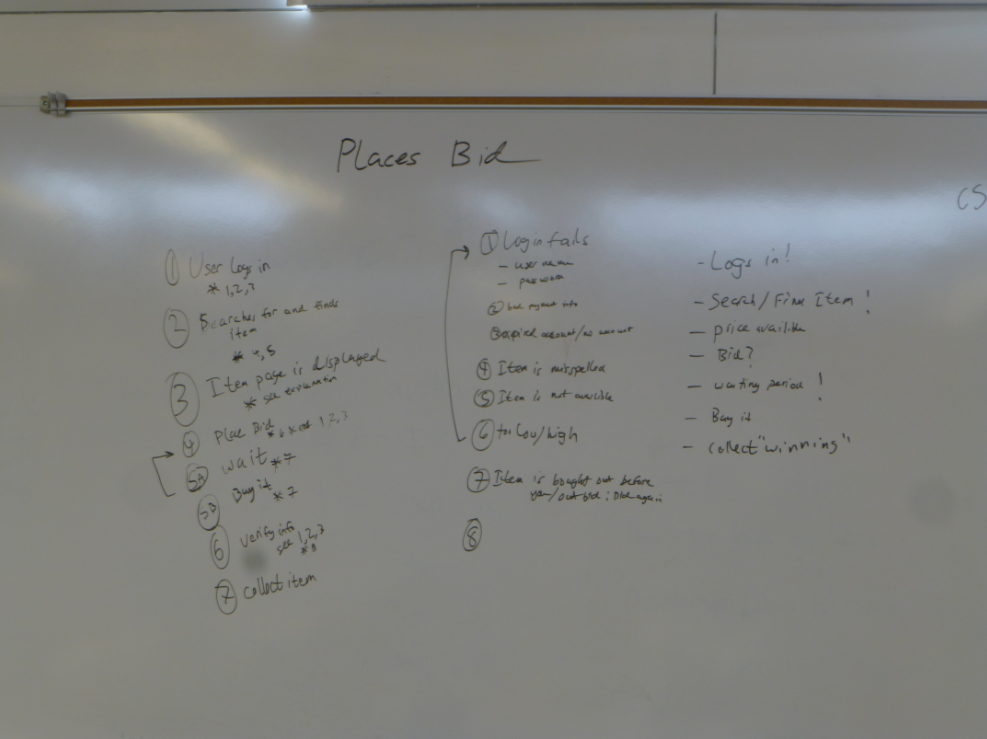 Places Bid
CS
① User Logs in
* 1,2,3
② Searches for and finds
item
* 4,5
③ Item page is displayed
* see explanation
④ Place Bid * 6 1,2,3
5A wait * 7
5B Buy it * 7
⑥ verify info
see 1,2,3
* 8
⑦ collect item
① Login fails
- user name
- password
② bad payment info
③ expired account/no account
④ Item is misspelled
⑤ Item is not availible
⑥ too low/high
⑦ Item is bought out before
/out bid: Bid again
⑧
- Logs in!
- Search/Find Item!
- price availible
- Bid?
- waiting period!
- Buy it
- collect "winning"